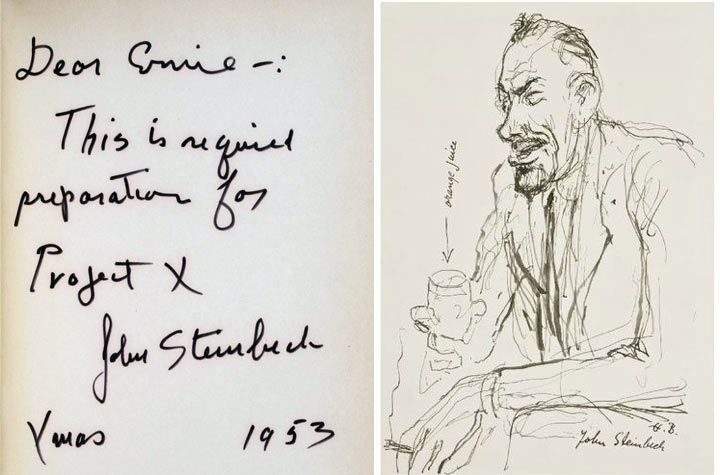 Dear Ernie -:
This is required
preparation for
Project X
John Steinbeck
Xmas 1953
orange juice
H.B.
John Steinbeck